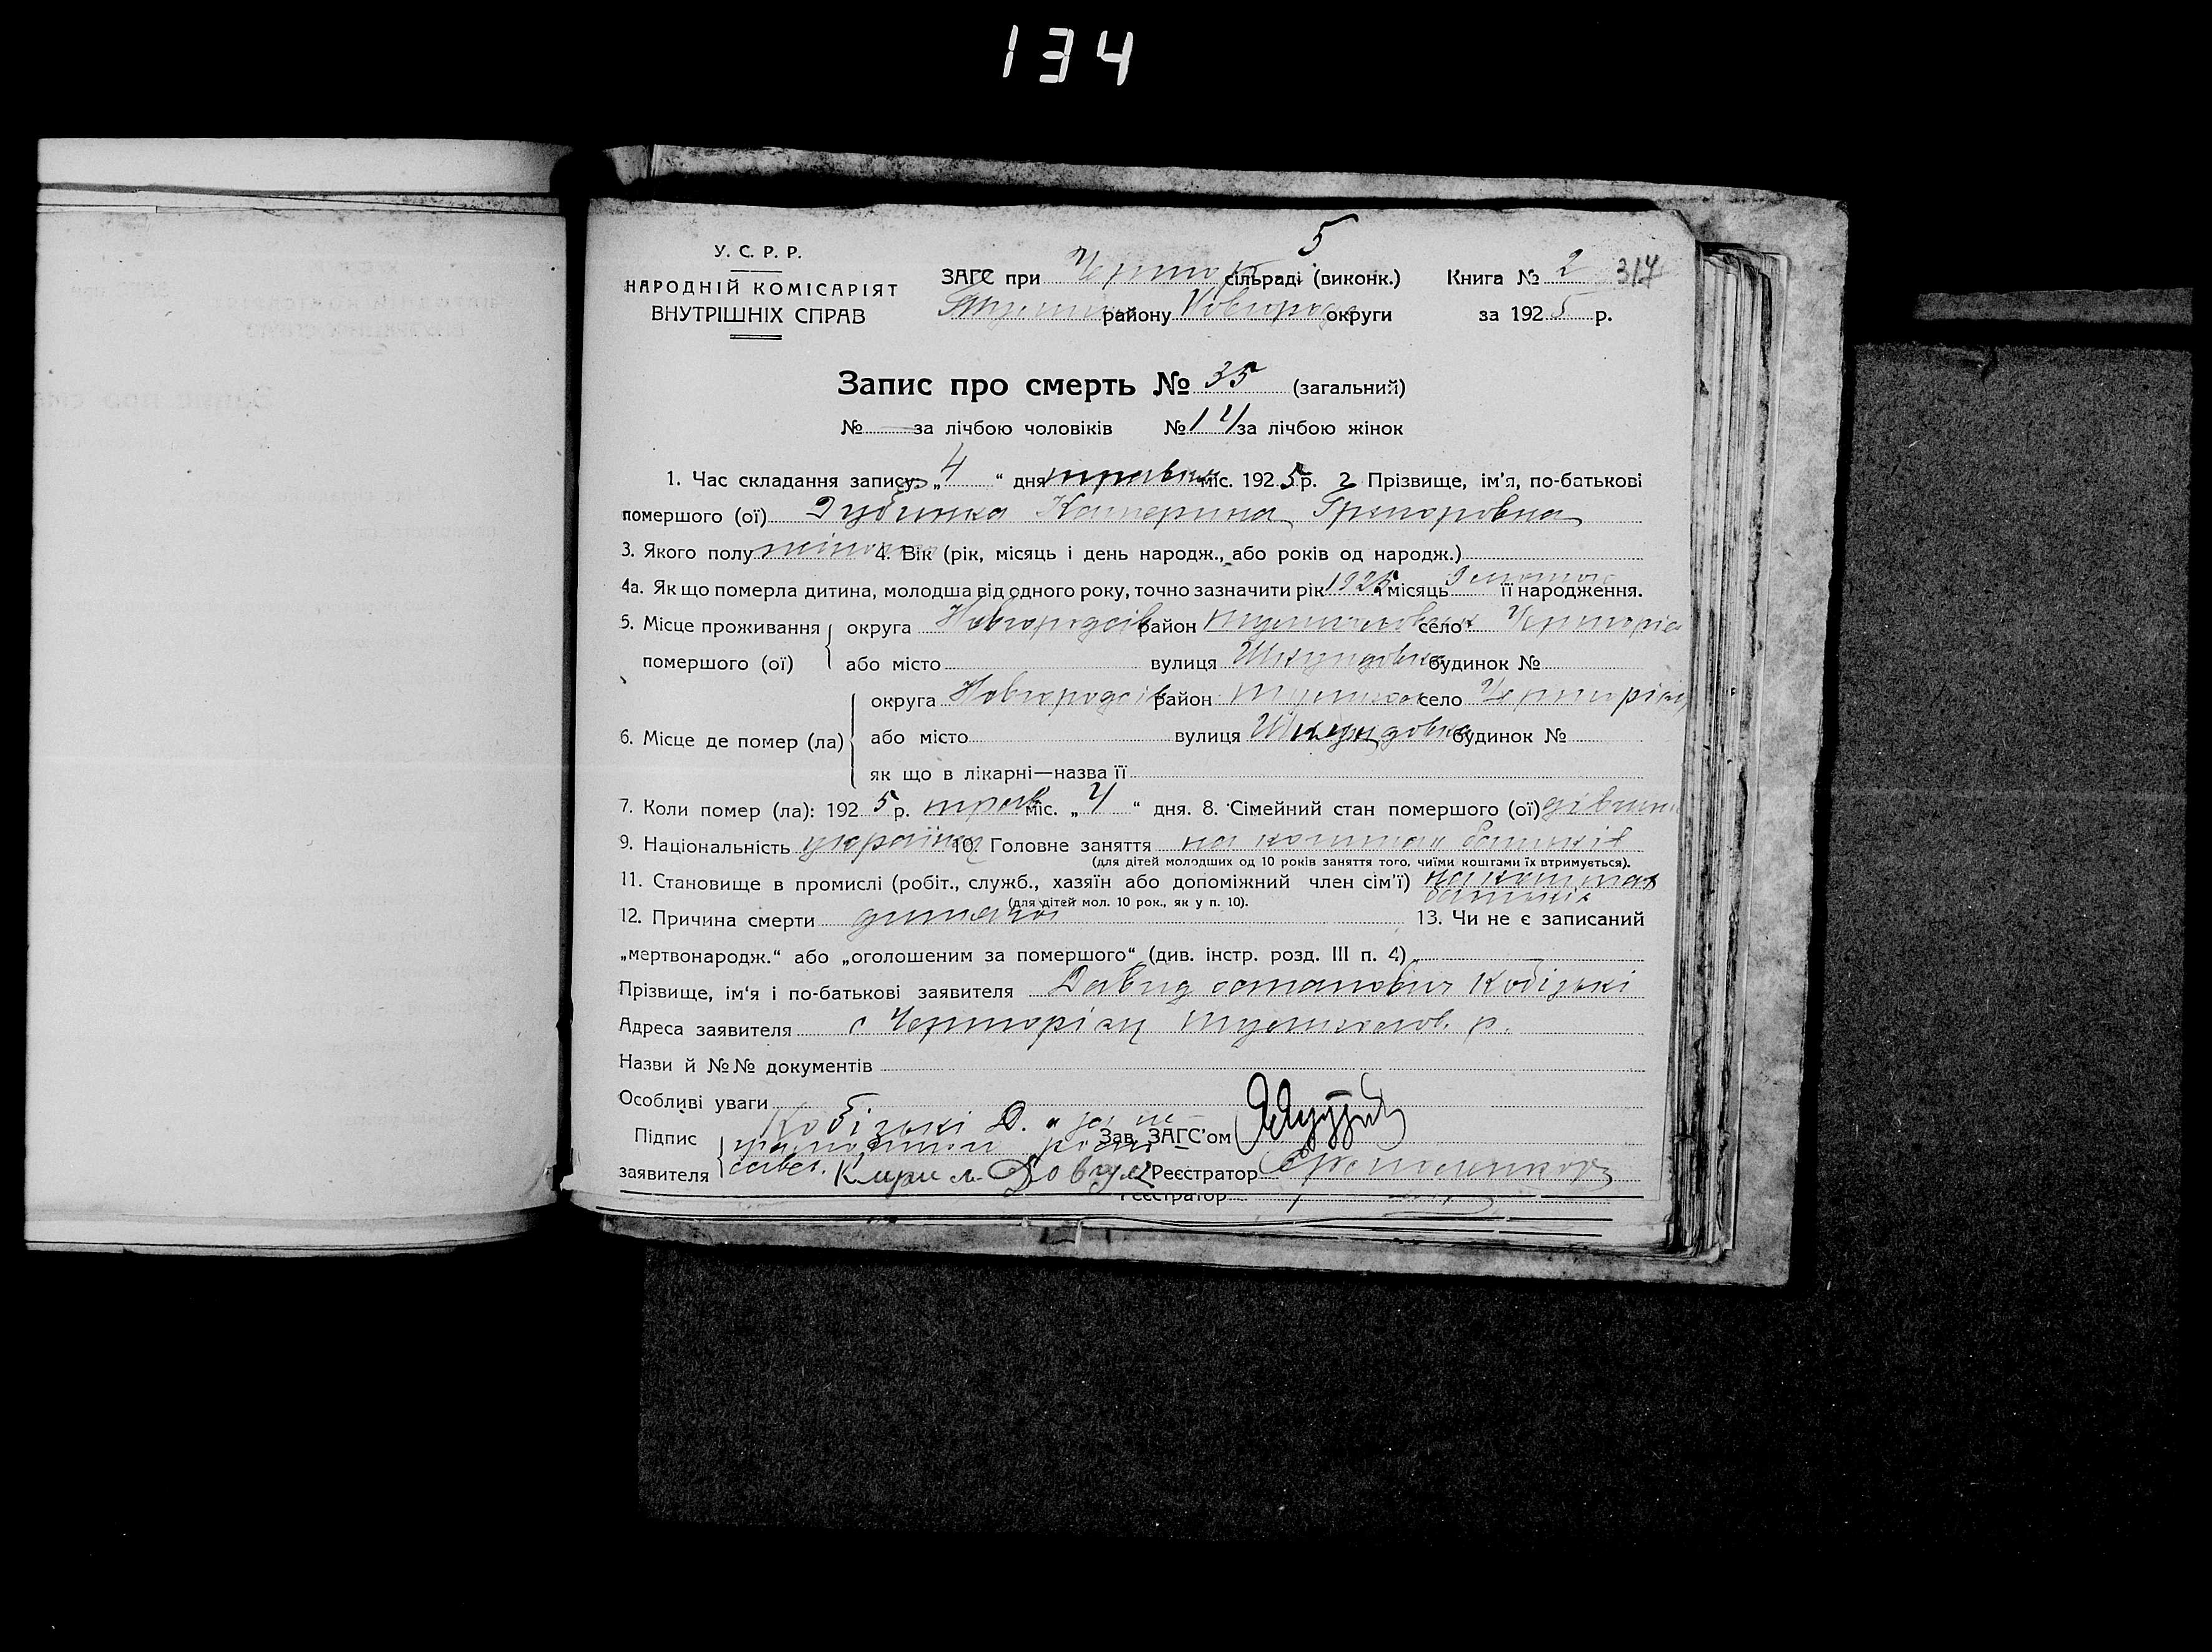 134
5
У. С. Р. Р.
НАРОДНІЙ КОМІСАРІЯТ
ВНУТРІШНІХ СПРАВ
ЗАГС при сільраді (виконк.) Книга № 2 317
району Новгород округи за 1925 р.
Запис про смерть № 35 (загальний)
№ — за лічбою чоловіків № 14 за лічбою жінок
1. Час складання запису: „4“ дня травня міс. 1925 р. 2 Прізвище, ім'я, по-батькові
помершого (ої) Дубинка Катерина Григоровна
3. Якого полу жіноча 4. Вік (рік, місяць і день народж., або років од народж.)
4а. Як що померла дитина, молодша від одного року, точно зазначити рік 1925 місяць її народження.
5. Місце проживання помершого (ої) округа Новгородсів район село
або місто вулиця будинок №
6. Місце де помер (ла) округа Новгородсів район село Чорторіги
або місто вулиця будинок №
як що в лікарні—назва її
7. Коли помер (ла): 1925 р. трав міс. „4“ дня. 8. Сімейний стан помершого (ої) дівчина
9. Національність українка 10. Головне заняття на коштах батьків
(для дітей молодших од 10 років заняття того, чиїми коштами їх втримується).
11. Становище в промислі (робіт., служб., хазяїн або допоміжний член сім'ї) на коштах
батьків
(для дітей мол. 10 рок., як у п. 10).
12. Причина смерти дитяча 13. Чи не є записаний
„мертвонародж.“ або „оголошеним за помершого“ (див. інстр. розд. III п. 4)
Прізвище, ім'я і по-батькові заявителя Давид остапович Кобізькі
Адреса заявителя с Чорторіги р.
Назви й №№ документів
Особливі уваги
Підпис заявителя Кобізькі Д. а за не
Зав. ЗАГС'ом
Кирил Довгуля Реєстратор
Реєстратор